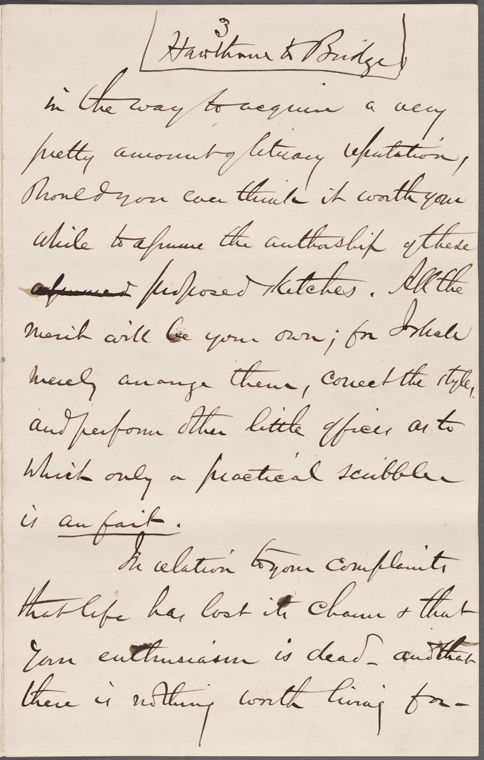 3
Hawthorne to Bridge
in the way to acquire a very
pretty amount of literary reputation,
should you ever think it worth your
while to assume the authorship of these
assumed proposed sketches. All the
merit will be your own; for I shall
merely arrange them, correct the style,
and perform other little offices as to
which only a practical scribbler
is au fait.
In relation to your complaints
that life has lost its charm & that
your enthusiasm is dead - and that
there is nothing worth living for -